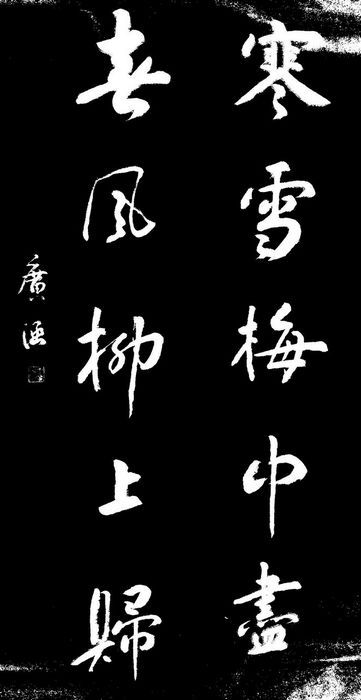 寒雪梅中盡
春風柳上歸
廣涵